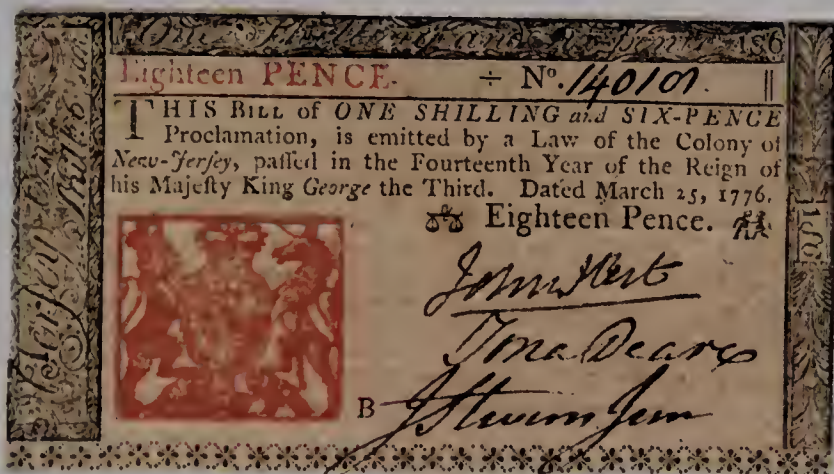 One Shilling and Six-pence 1s6
Eighteen PENCE. ÷ No. 140101
THIS BILL of ONE SHILLING and SIX-PENCE
Proclamation, is emitted by a Law of the Colony of
New-Jerſey, paſſed in the Fourteenth Year of the Reign of
his Majeſty King George the Third. Dated March 25, 1776.
Eighteen Pence.
John Hart
Deare
B J Stevens Jun
Jerſey